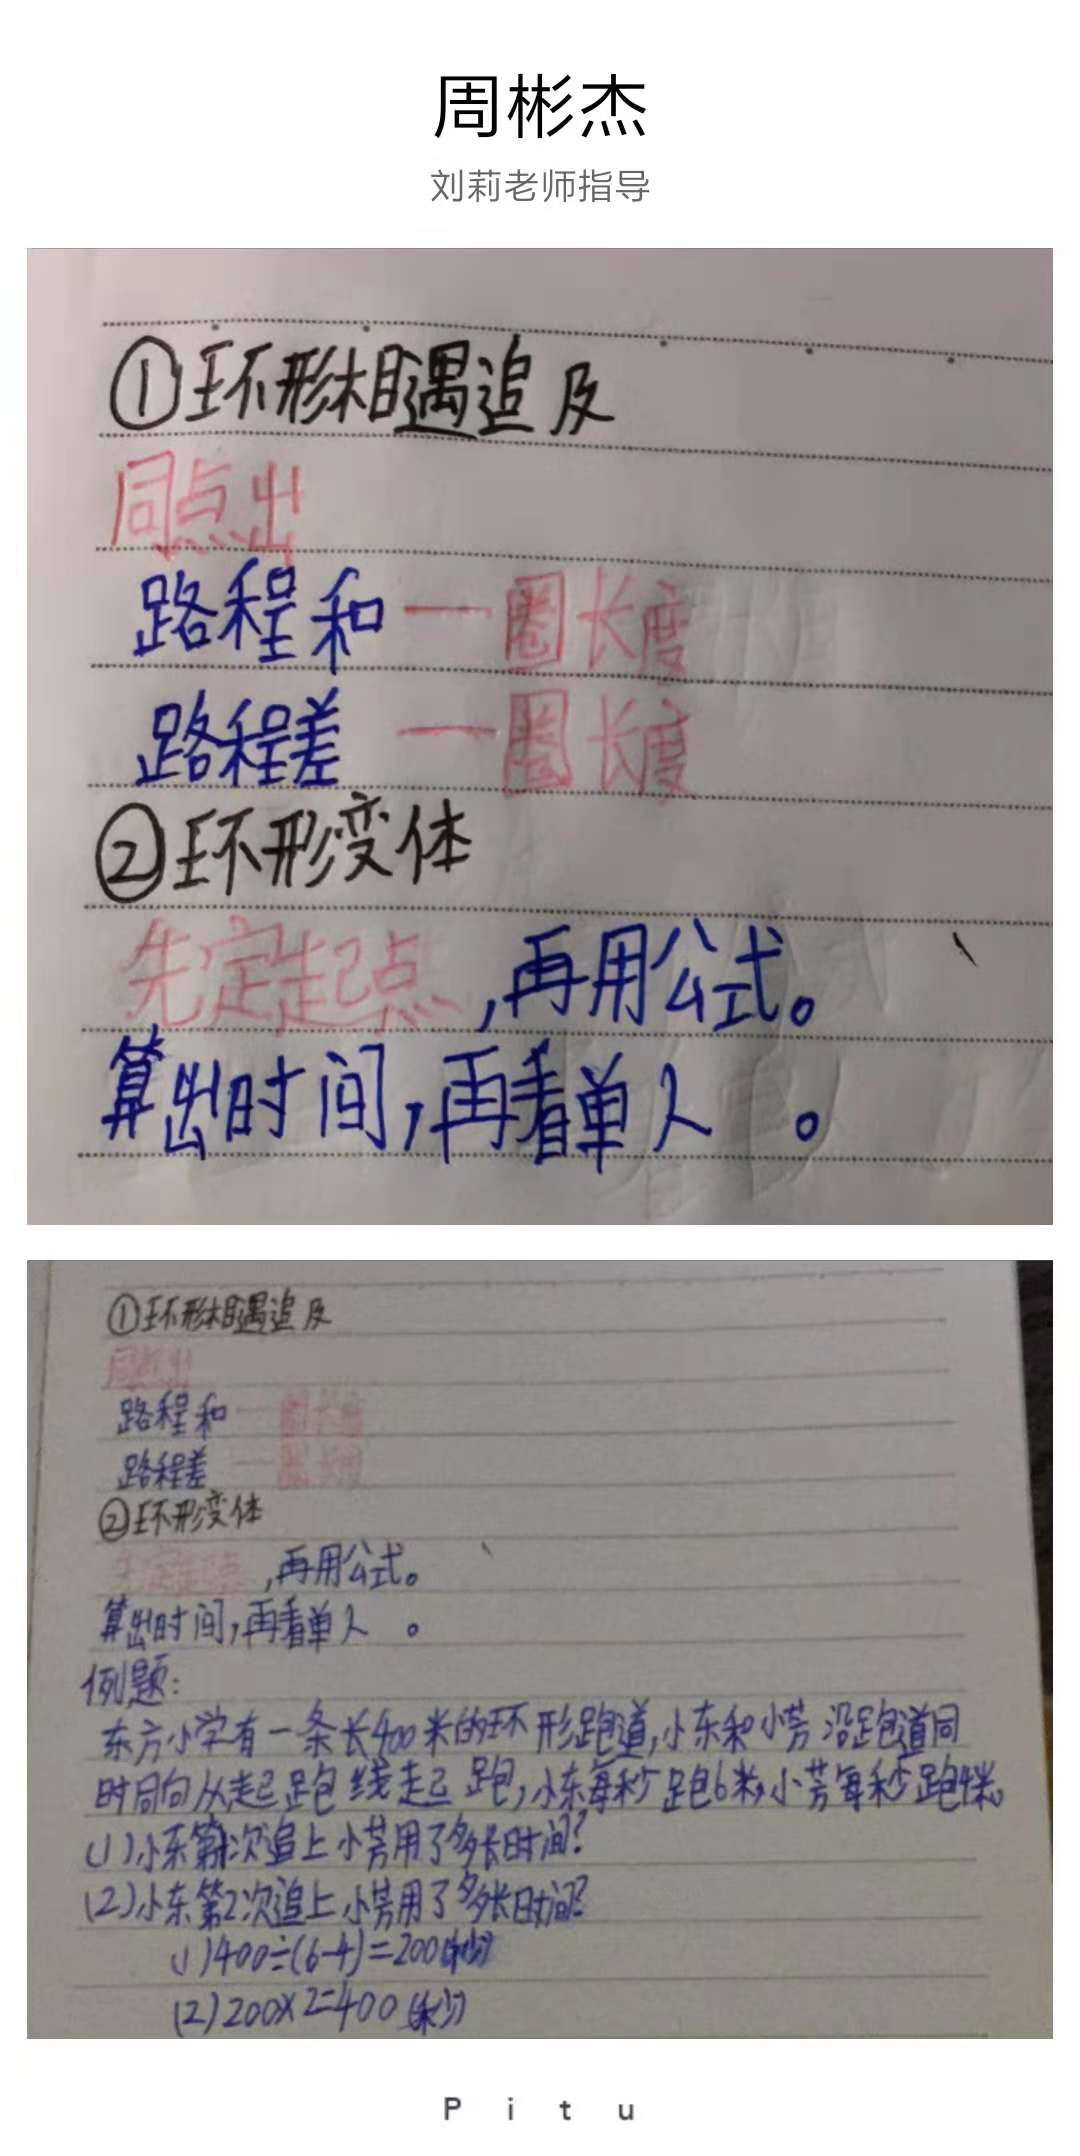 周彬杰
刘莉老师指导
①环形相遇追及
同点出
路程和一圈长度
路程差一圈长度
②环形变体
先定起点,再用公式。
算出时间,再看单人 。
①环形相遇追及
同点出
路程和一圈长度
路程差一圈长度
②环形变体
先定起点,再用公式。
算出时间,再看单人 。
例题:
东方小学有一条长400米的环形跑道,小东和小芳沿跑道同
时同向从起跑线起跑,小东每秒跑6米,小芳每秒跑4米。
(1)小东第1次追上小芳用了多长时间?
(2)小东第2次追上小芳用了多长时间?
(1)400÷(6-4)=200(秒)
(2)200×2=400(秒)
Pitu